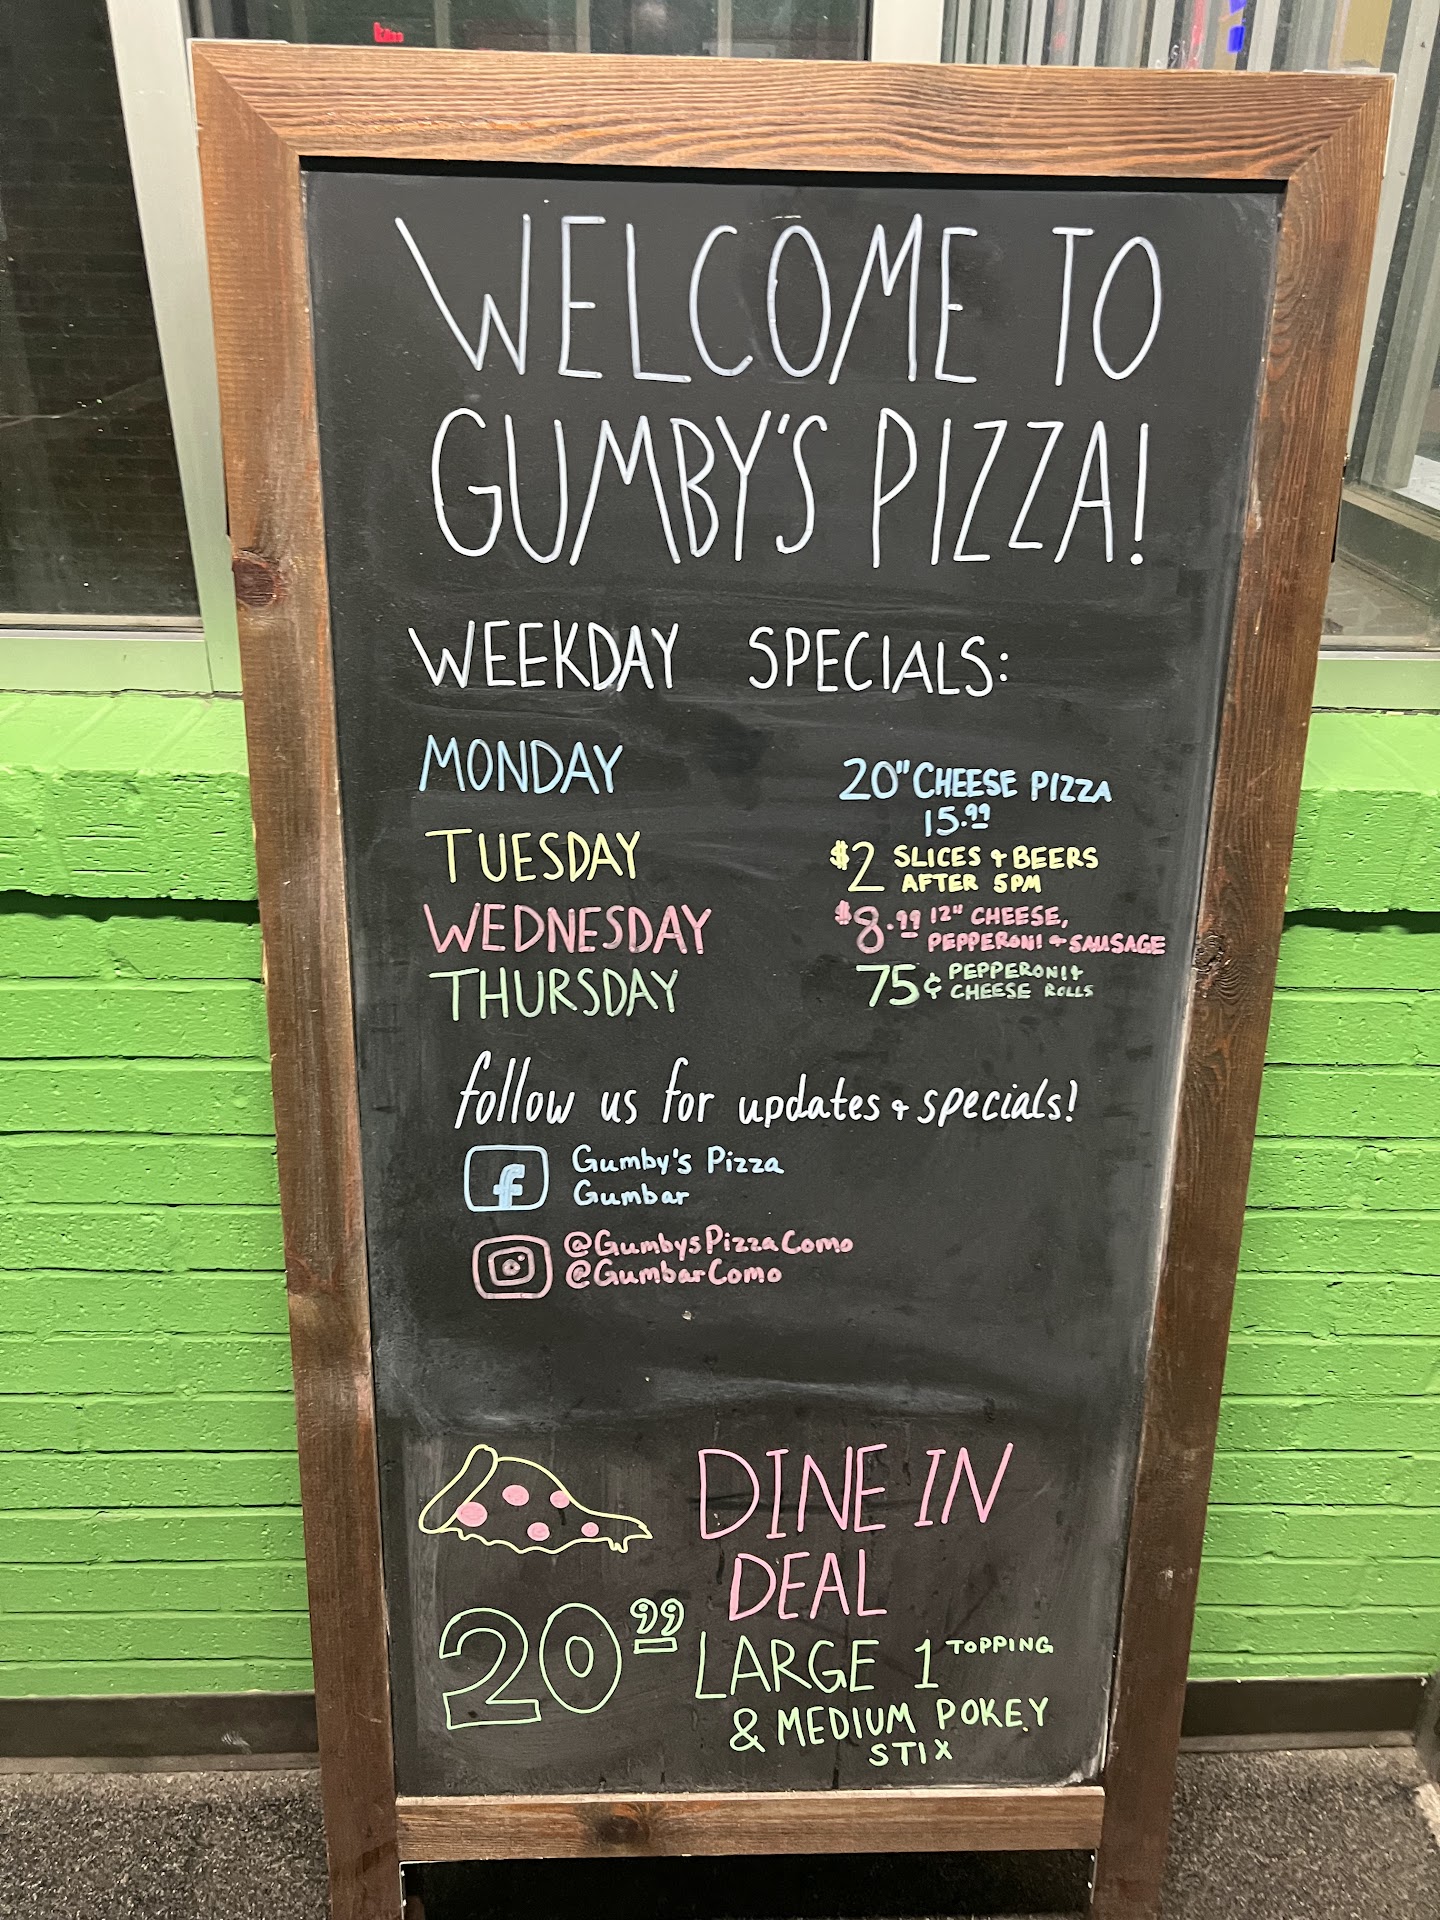 WELCOME TO
GUMBY'S PIZZA!
WEEKDAY SPECIALS:
MONDAY 20" CHEESE PIZZA
15.99
TUESDAY $2 SLICES + BEERS
AFTER 5PM
WEDNESDAY $8.99 12" CHEESE,
PEPPERONI + SAUSAGE
THURSDAY 75¢ PEPPERONI +
CHEESE ROLLS
follow us for updates + specials!
f Gumby's Pizza
Gumbar
@GumbysPizzaComo
@GumbarComo
DINE IN
DEAL
20.99 LARGE 1 TOPPING
& MEDIUM POKEY
STIX